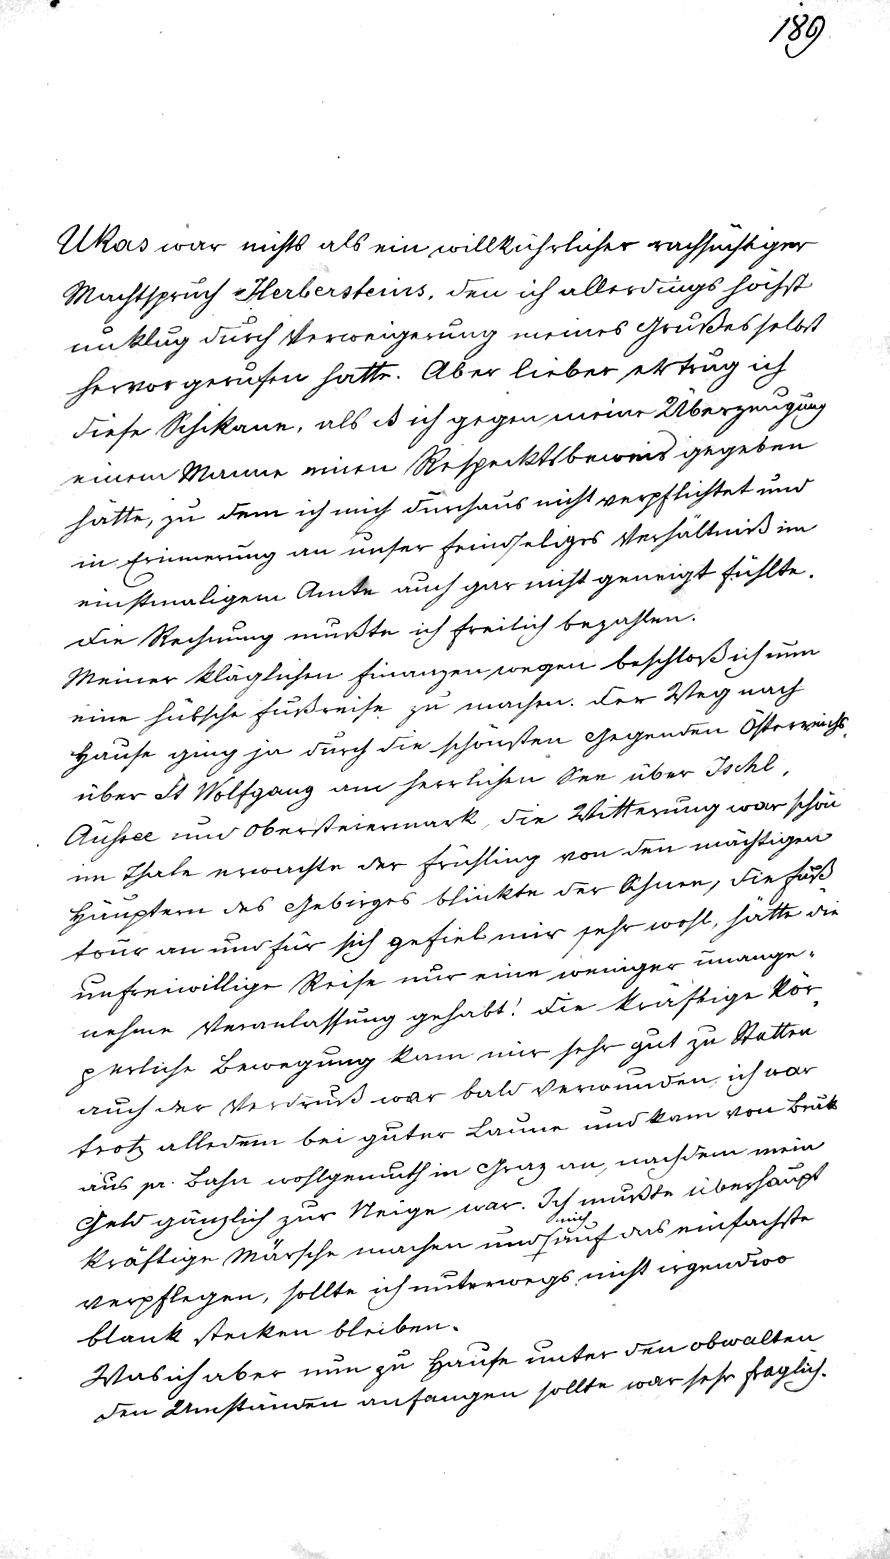 189
Ukas war nichts als ein willkührlicher rachsüchtiger
Machtspruch Herbersteins, den ich allerdings höchst
unklug durch Verweigerung meines Grußes selbst
hervorgerufen hatte. Aber lieber ertrug ich
diese Schikane, als ich gegen meine Überzeugung
einem Manne einen Respecktsbeweis gegeben
hätte, zu dem ich mich durchaus nicht verpflichtet und
in Erinnerung an unser feindseliges Verhältniß im
einstmaligem Amte auch gar nicht geneigt fühlte.
Die Rechnung mußte ich freilich bezahlen.
Meiner kläglichen Finanzen wegen beschloß ich nun
eine hübsche Fußreise zu machen. Der Weg nach
Hause ging ja durch die schönsten Gegenden Österreichs,
über St Wolfgang am herrlichen See über Ischl,
Aussee und Obersteiermark, die Witterung war schön
im Thale erwachte der Frühling von den mächtigen
Häuptern des Gebirges blinkte der Schnee, die Fuß
tour an und für sich gefiel mir sehr wohl, hätte die
unfreiwillige Reise nur eine weniger unange-
nehme Veranlassung gehabt! Die kräftige kör-
perliche Bewegung kam mir sehr gut zu Statten
auch der Verdruß war bald verwunden, ich war
trotz alledem bei guter Laune und kam von Bruk
aus pr. Bahn wohlgemuth in Graz an, nachdem mein
Geld gänzlich zur Neige war. Ich mußte überhaupt
kräftige Märsche machen und mich auf das einfachste
verpflegen, sollte ich unterwegs nicht irgendwo
blank stecken bleiben.
Was ich aber nun zu Hause unter den obwalten
den Umständen anfangen sollte war sehr fraglich.